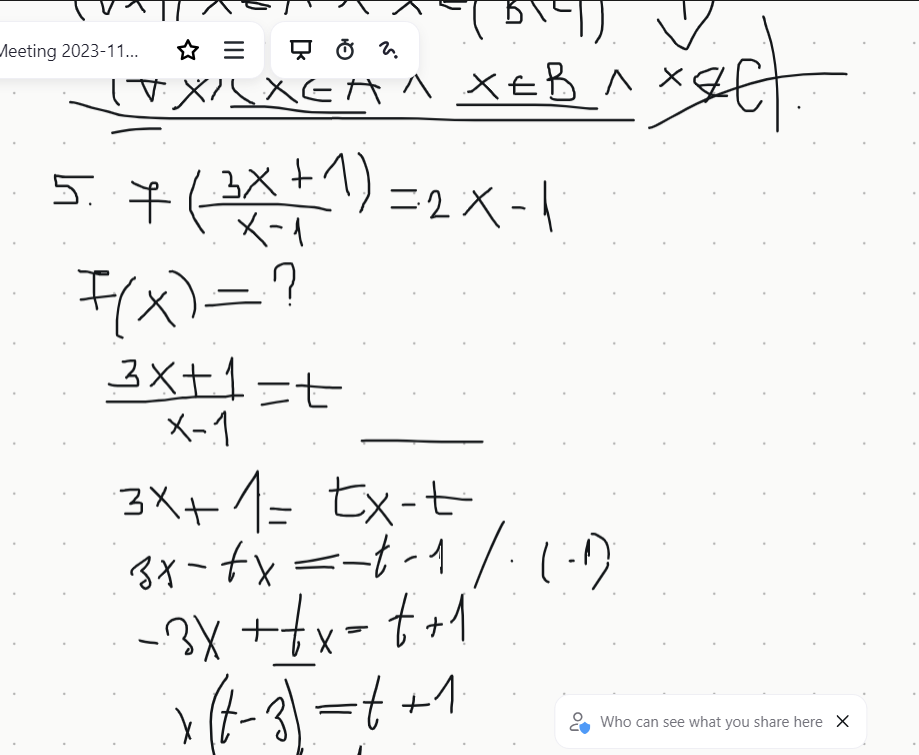 Meeting 2023-11...
(∀x)(x∈A ∧ x∈B ∧ x∉C)
5. f(3x+1/x-1) = 2x-1
f(x) = ?
3x+1/x-1 = t
3x+1 = tx-t
3x-tx = -t-1 /·(-1)
-3x+tx = t+1
x(t-3) = t+1
Who can see what you share here